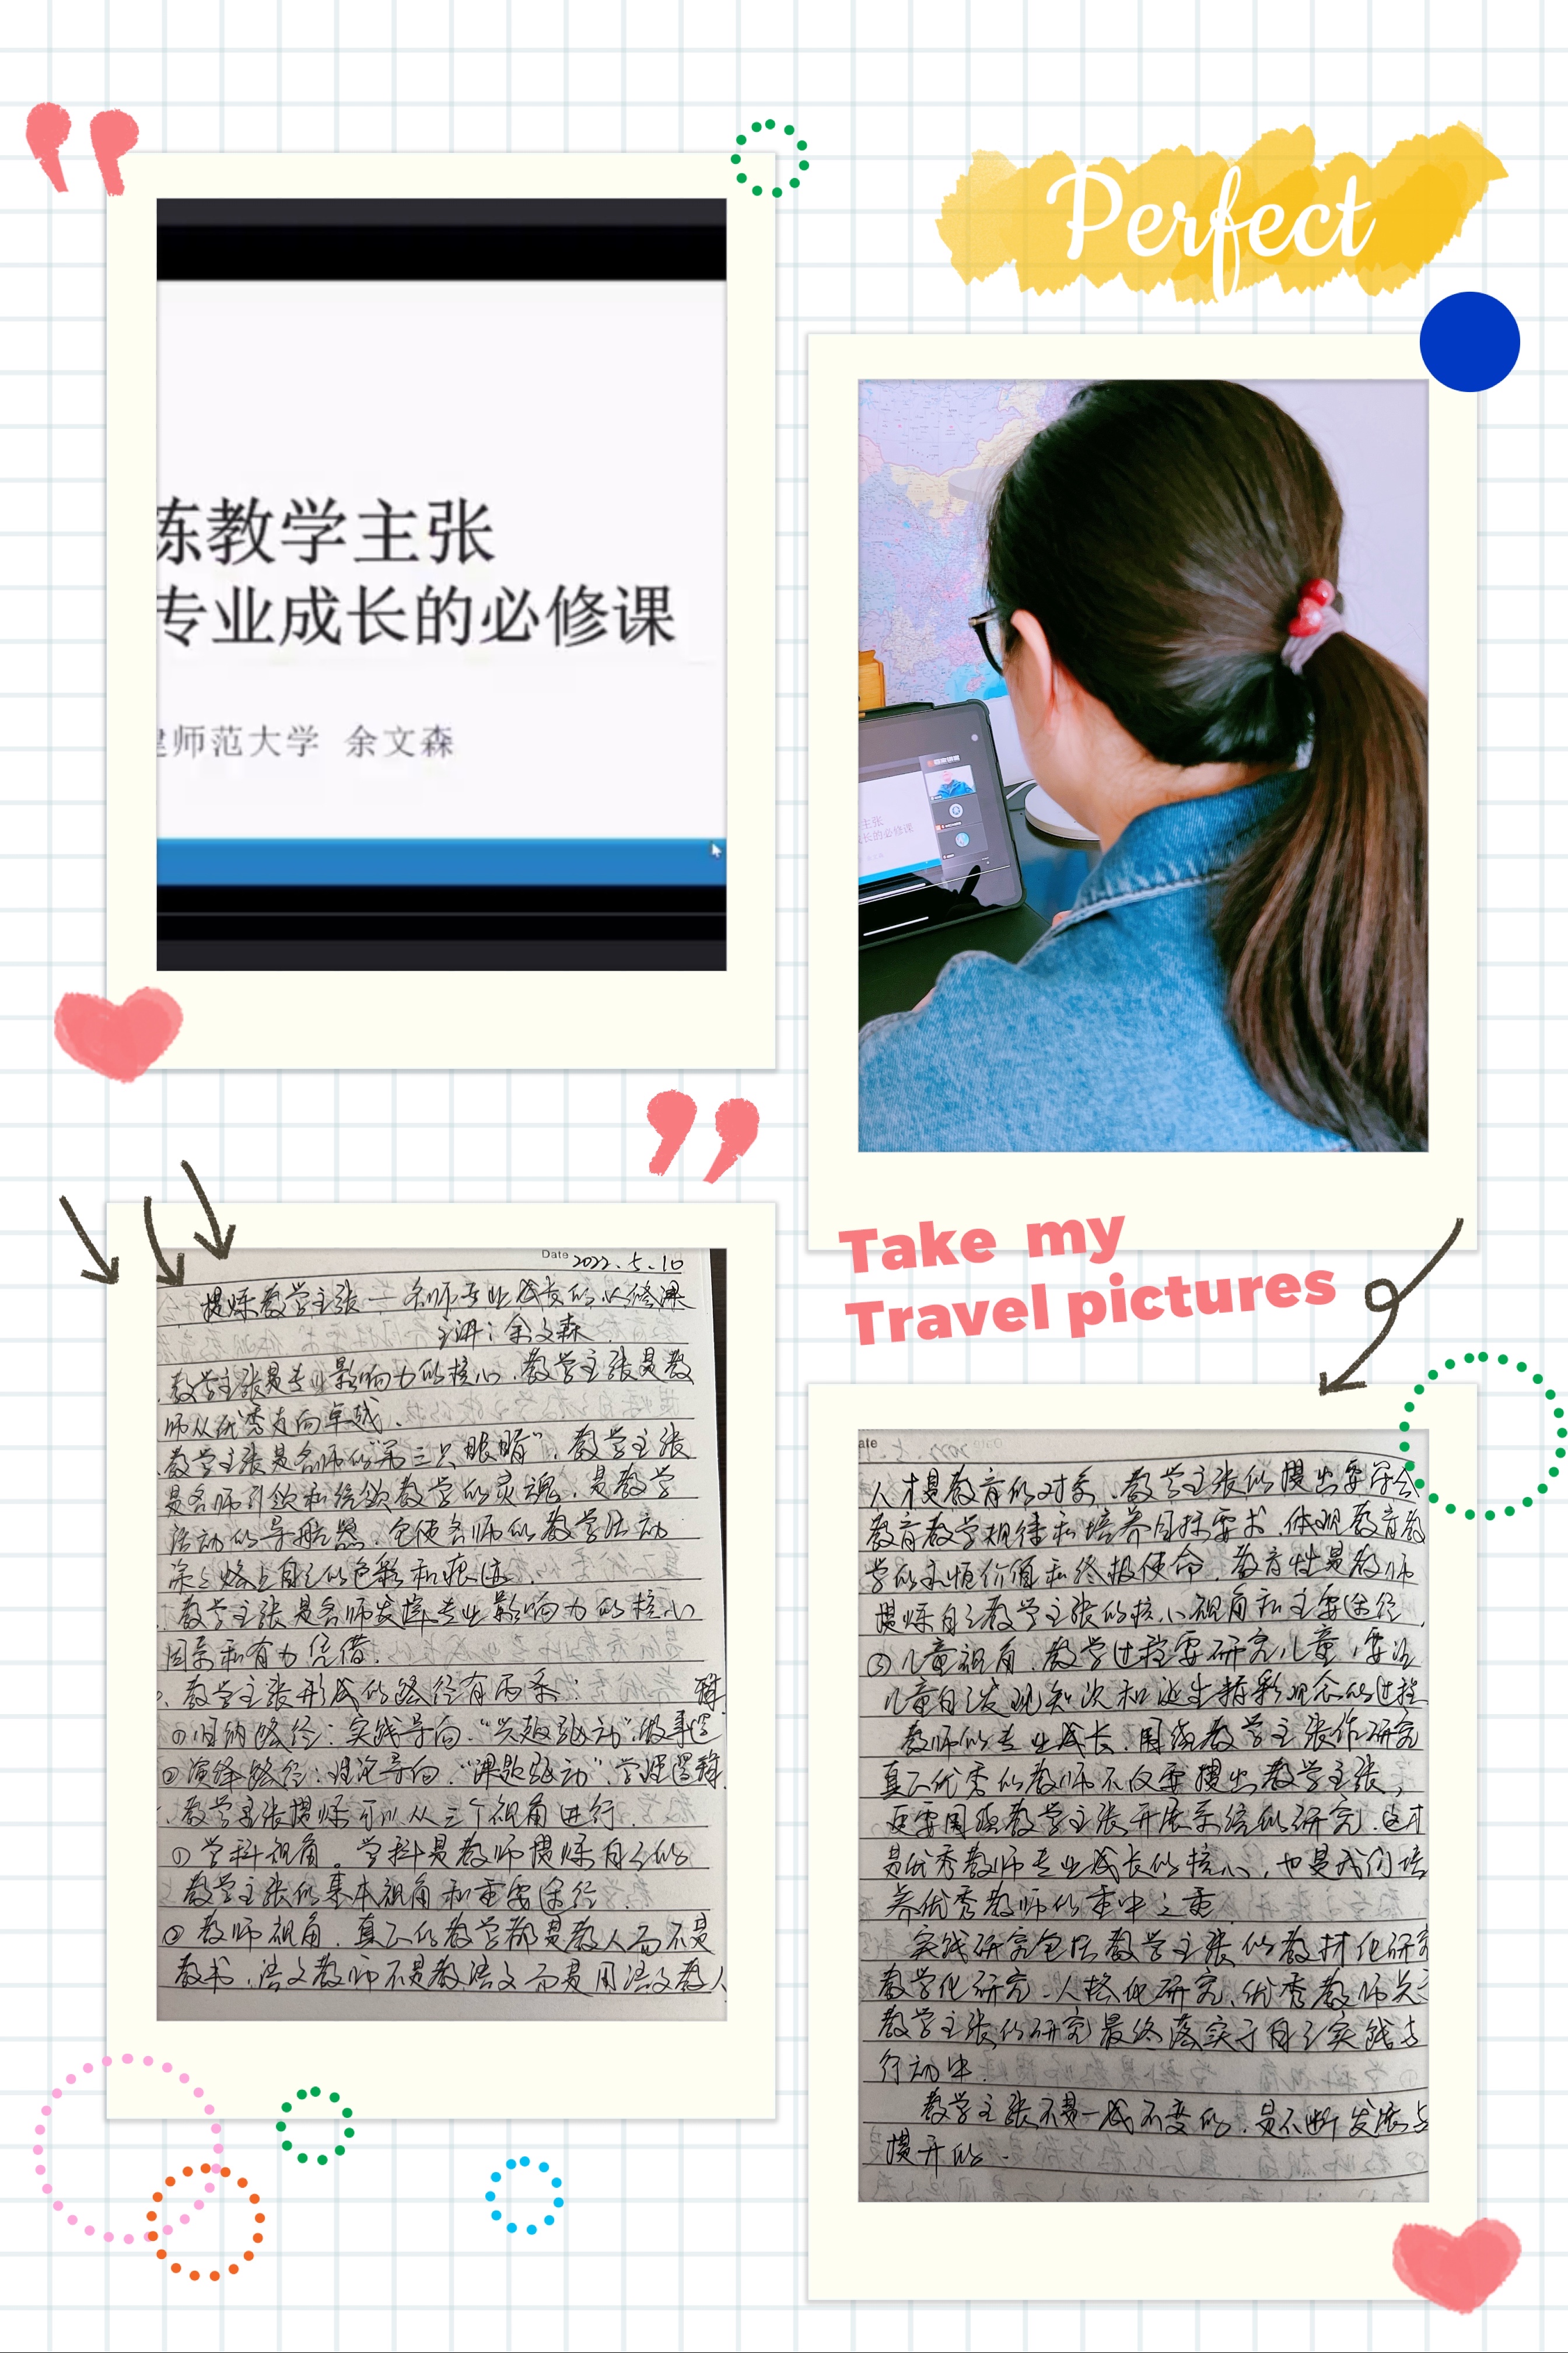 Perfect
炼教学主张
专业成长的必修课
建师范大学 余文森
主张
长的必修课
Take my
Travel pictures
Date 2022.5.10
提炼教学主张——名师专业成长的必修课
主讲：余文森
教学主张是专业影响力的核心，教学主张是教
师从优秀走向卓越.
教学主张是名师的“第三只眼睛”，教学主张
是名师引领和统领教学的灵魂，是教学
活动的导航器，它使名师的教学活动
深深烙上自己的色彩和痕迹.
教学主张是名师发挥专业影响力的核心
因素和有力凭借.
教学主张形成的路径有两条：
①归纳路径：实践导向，“兴趣驱动”，做事逻辑
②演绎路径：理论导向，“课题驱动”，学理逻辑
教学主张提炼可以从三个视角进行.
①学科视角。学科是教师提炼自己的
教学主张的基本视角和重要途径.
②教师视角．真正的教学都是教人而不是
教书．语文教师不是教语文而是用语文教人
ate
人才是教育的对象．教学主张的提出要符合
教育教学规律和培养目标要求，体现教育教
学的永恒价值和终极使命．教育性是教师
提炼自己教学主张的核心视角和主要途径.
③儿童视角．教学过程要研究儿童，要让
儿童自己发现知识和诞生精彩观念的过程
教师的专业成长．围绕教学主张作研究
真正优秀的教师不仅要提出教学主张，
更要围绕教学主张开展系统的研究．这才
是优秀教师专业成长的核心，也是我们培
养优秀教师的重中之重.
实践研究包括教学主张的教材化研究
教学化研究、人格化研究，优秀教师关于
教学主张的研究最终落实于自己实践与
行动中.
教学主张不是一成不变的，是不断发展与
提升的.